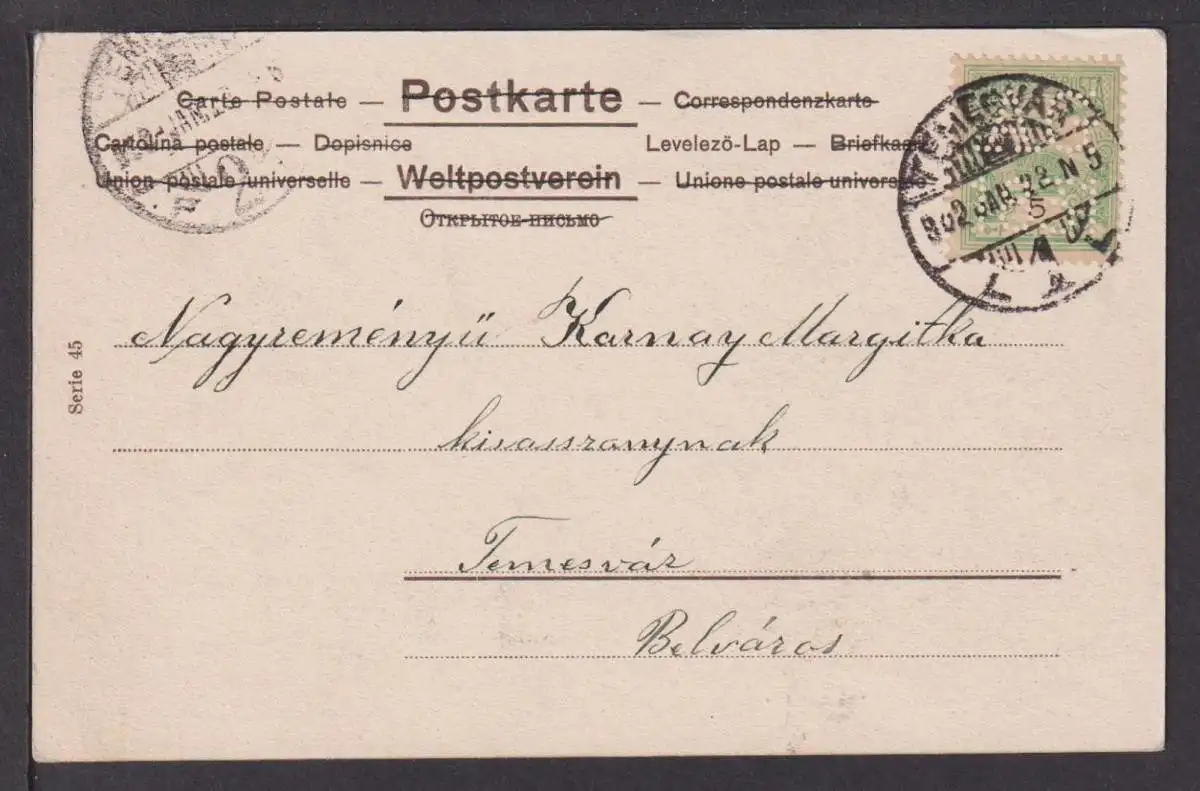 Carte Postale — Postkarte — Correspondenzkarte
Cartolina postale — Dopisnice Levelező-Lap — Briefkaart
Union postale universelle — Weltpostverein — Unione postale universale
Открытое письмо
TEMESVÁR
902 JAN. 22 N 5
5
Serie 45
Nagyreményű Karnay Margitka
kisasszonynak
Temesvár
Belváros